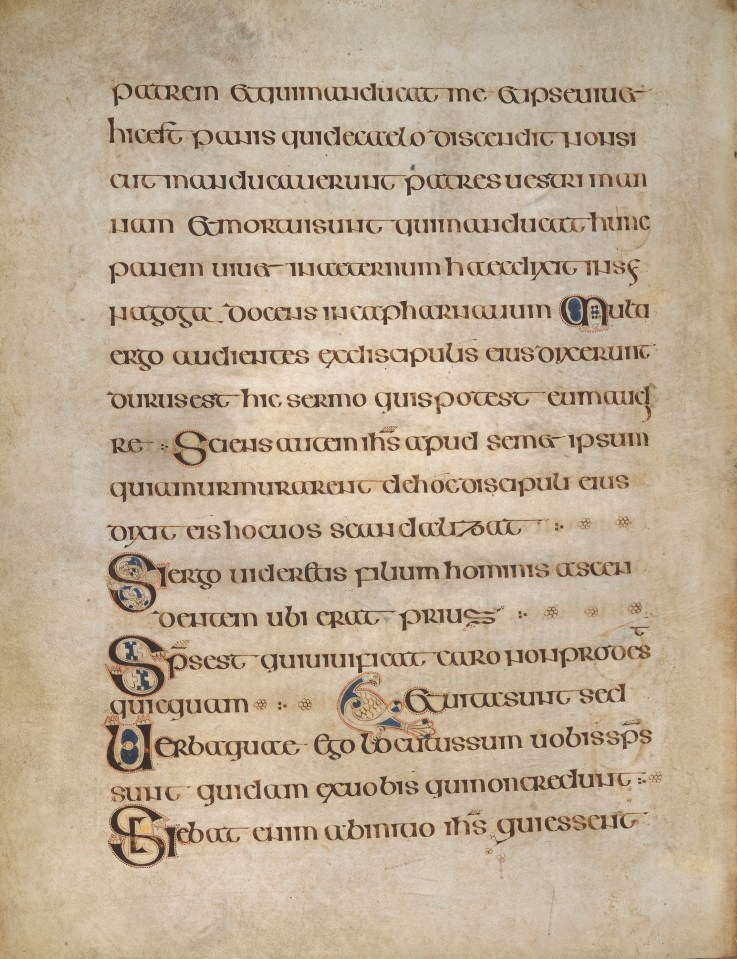 patrem &quimanducat me &ipseuiu&
hicest panis quidecaelo discendit nonsi
cut manducauerunt patres uestri man
nam &mortuisunt quimanducat hunc
panem uiu& inaeternum haecdixit insy
nagoga docens incapharnauum Multi
ergo audientes exdiscipulis eius dixerunt
durusest hic sermo quispotest eumaudi
re Sciens autem ih̅s apud sem& ipsum
quiamurmurarent dehoc discipuli eius
dixit eis hocuos scandalizat
Siergo uideritis filium hominis ascen
dentem ubi erat prius
Sp̅s est quiuiuificat caro nonprodest
quicquam &uitasunt sed
Uerbaquae ego locutussum uobis sp̅s
sunt quidam exuobis quinoncredunt
Sciebat enim abinitio ih̅s quiessent